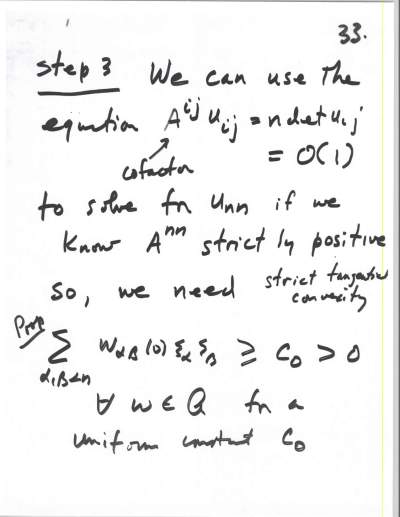 33.
Step 3 We can use the
equation A^{ij} u_{ij} = n det u_{ij}
cofactor = O(1)
to solve for u_{nn} if we
know A^{nn} strictly positive
So, we need strict tangential
convexity
Prop
∑ w_{αβ}(0) ξ_α ξ_β ≥ C_0 > 0
α,β<n
∀ w ∈ Q for a
uniform constant C_0